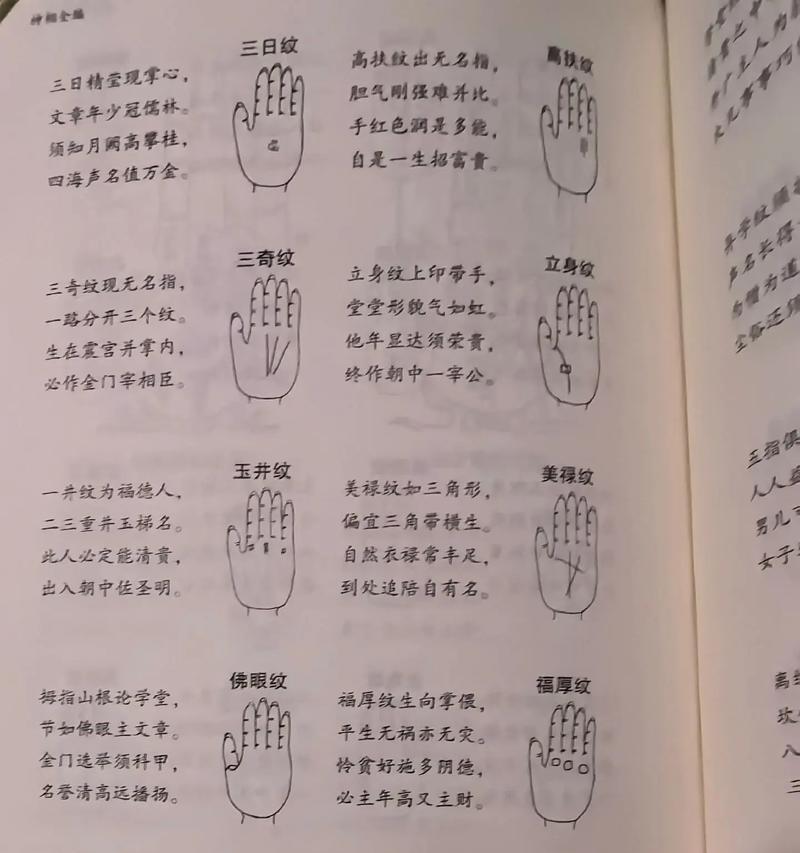 神相全编
三日纹
三日精莹现掌心，
文章年少冠儒林。
须知月阙高攀桂，
四海声名值万金。
高扶纹
高扶纹出无名指，
胆气刚强难并比。
手红色润是多能，
自是一生招富贵。
三奇纹
三奇纹现无名指，
一路分开三个纹。
生在震宫并掌内，
必作金门宰相臣。
立身纹
立身纹上印带手，
堂堂形貌气如虹。
他年显达须荣贵，
终作朝中一宰公。
玉井纹
一井纹为福德人，
二三重井玉梯名。
此人必定能清贵，
出入朝中佐圣明。
美禄纹
美禄纹如三角形，
偏宜三角带横生。
自然衣禄常丰足，
到处追陪自有名。
佛眼纹
拇指山根论学堂，
节如佛眼主文章。
金门选举须科甲，
名誉清高远播扬。
福厚纹
福厚纹生向掌偎，
平生无祸亦无灾。
怜贫好施多阴德，
必主年高又主财。
异学纹
声名长得
为僧为道
尘俗还须
三指俱
人人
男儿
女子
离
坎
八
三